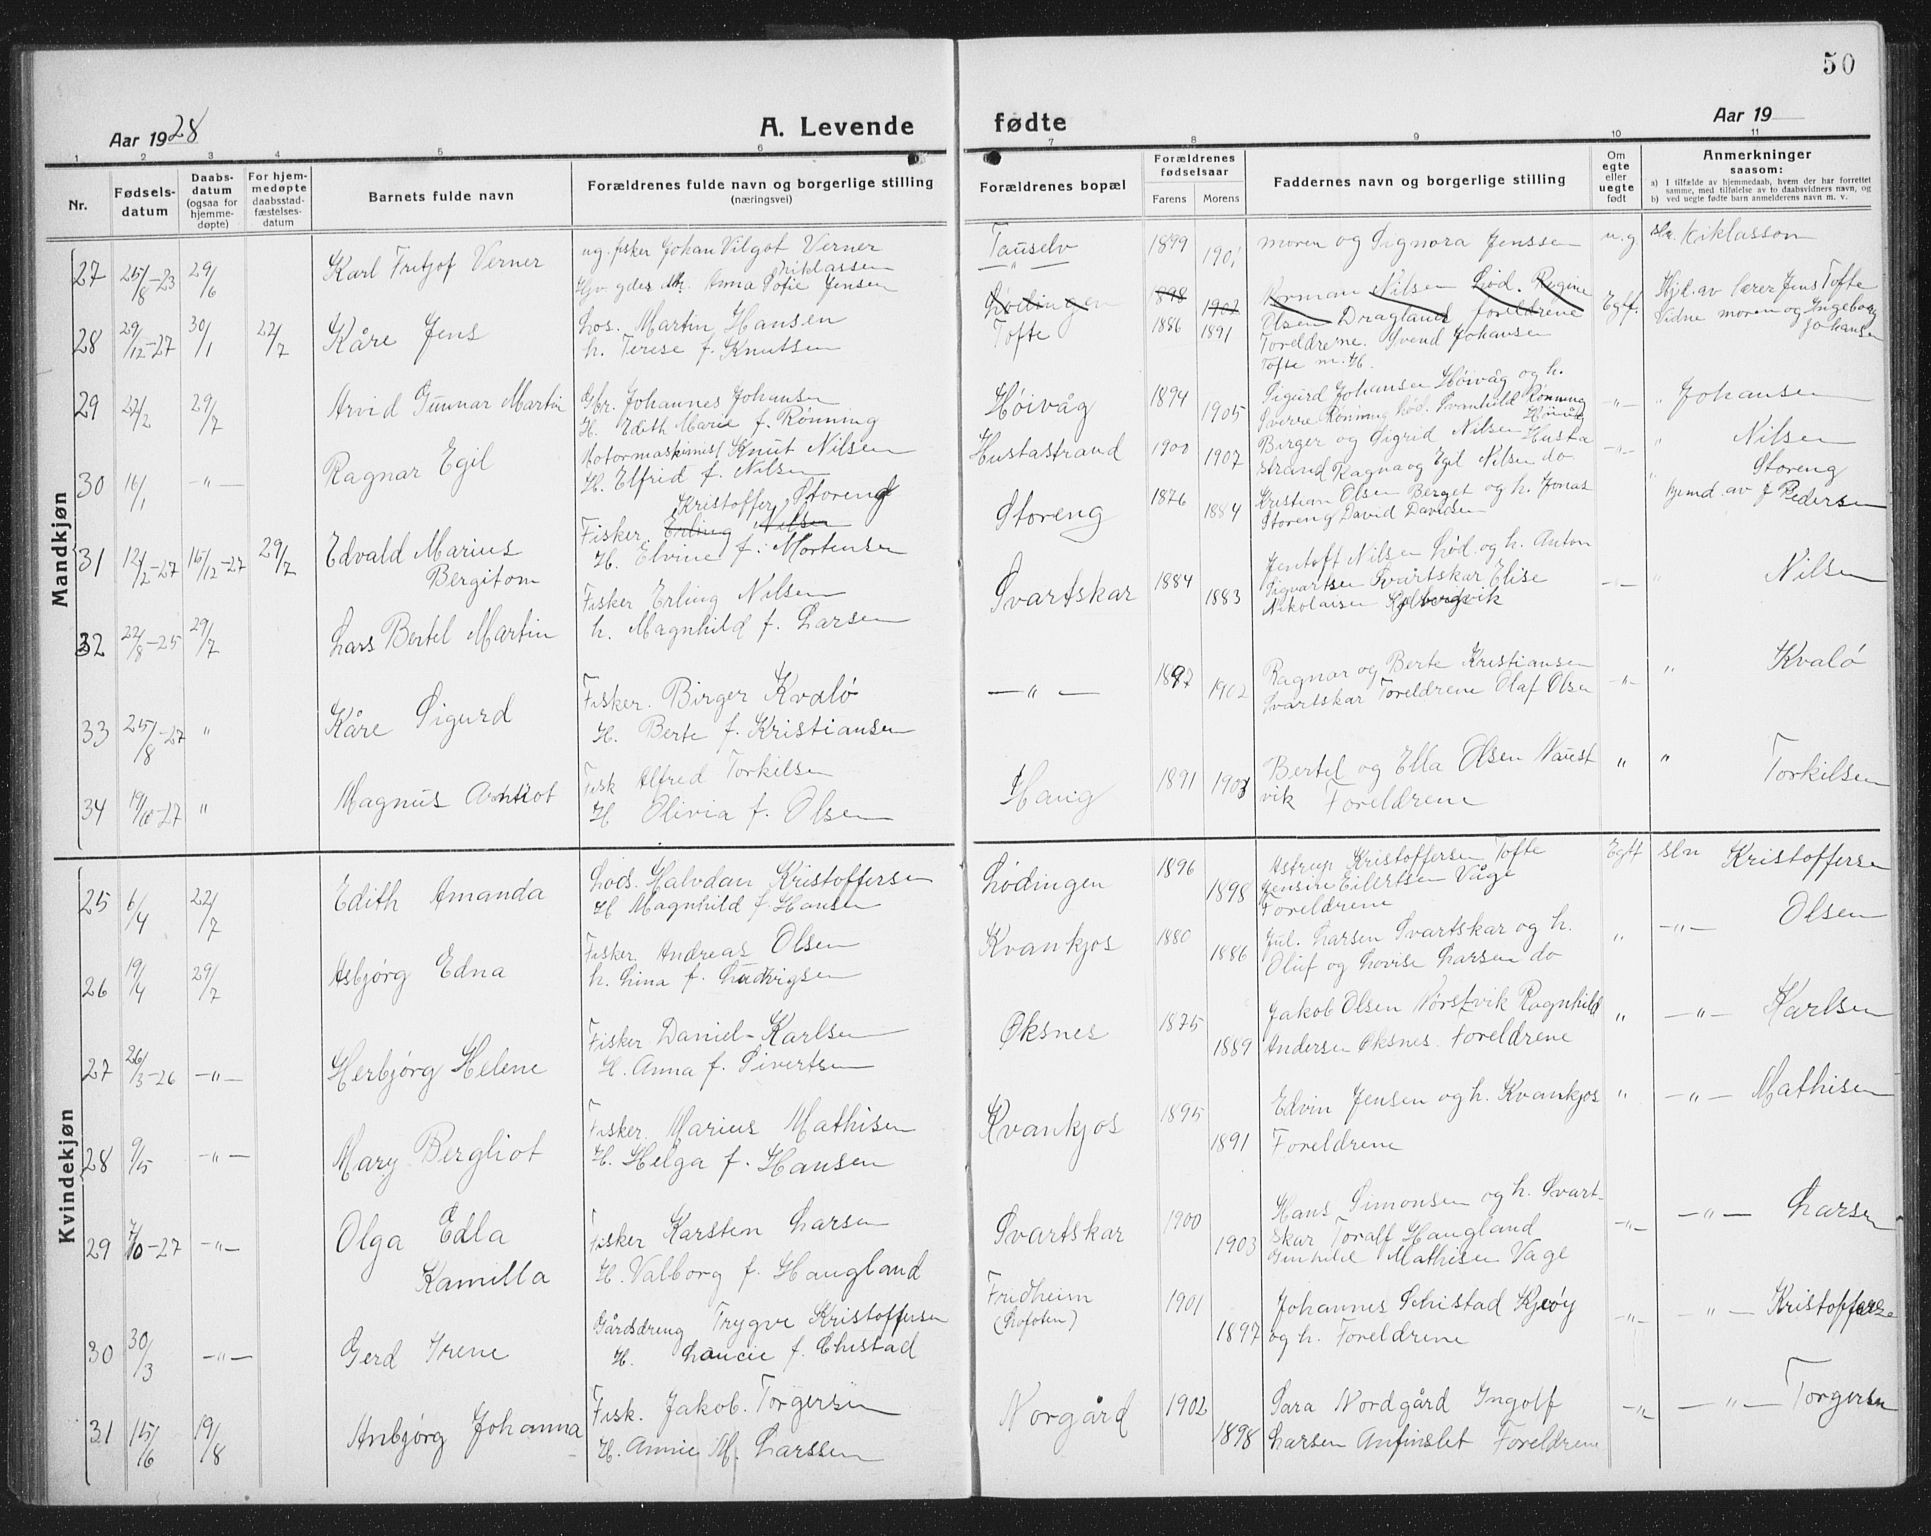 50
Aar 1928
A. Levende
fødte
Aar 19
1 2 3 4 5 6 7 8 9 10 11
Nr.
Fødsels-
datum
Daabs-
datum
(ogsaa for
hjemme-
døpte)
For hjem-
medøpte
daabsstad-
fæstelses-
datum
Barnets fulde navn
Forældrenes fulde navn og borgerlige stilling
(næringsvei)
Forældrenes bopæl
Forældrenes
fødselsaar
Farens Morens
Faddernes navn og borgerlige stilling
Om
egte
eller
uegte
født
Anmerkninger
saasom:
a) I tilfælde av hjemmedaab, hvem der har forrettet
samme, med tilføielse av to daabsvidners navn, og
b) ved uegte fødte barn anmelderens navn m. v.
Mandkjøn
27 25/8-23 29/6 Karl Fretjof Verner
ug. fisker Johan Vilgot Verner
Niklassen
Anna Sofie Jensen
Tauselv 1899 1901
moren og Signora Jenssen u.g Niklasson
Lødingen 1898 1902
Norman Nilsen Lød. Regine
Olsen Dragland foreldrene
28 29/12-27 30/1 22/7 Kåre Jens
Los. Martin Hansen
h. Terese f. Knutsen
Tofte 1886 1891
Foreldrene. Svend Johansen
Tofte m. H.
Egtf. Hjd. av lærer Jens Tofte
Vidne moren og Ingeborg
Johansen
29 22/2 29/7 Arvid Gunnar Martin
Gbr. Johannes Johansen
H. Edith Marie f. Rønning
Høivåg 1894 1905
Sigurd Johansen Høivåg og h.
Sverre Rønning Lød. Svanhild Rønning
Høivåg
-"- " Johansen
30 16/1 -"- Ragnar Egil
Motormaskinist Knut Nilsen
H. Elfrid f. Nilsen
Hustastrand 1900 1907
Birger og Sigrid Nilsen Husta
strand Ragna og Egil Nilsen do
-"- " Nilsen
31 12/2-27 16/12-27 29/7 Edvald Marius
Bergitom
Kristoffer Storeng
Fisker. Erling Nilsen
H. Elvine f. Mortensen
Storeng 1876 1884
Kristian Olsen Berget og h. Jonas
Storeng David Davidsen
" Storeng
hjemd. av J Pedersen
32 22/8-25 29/7 Lars Bertel Martin
Fisker Erling Nilsen
h. Magnhild f. Larsen
Svartskar 1884 1883
Jentoft Nilsen Lød. og h. Anton
Sigvartsen Svartskar Elise
Nikolaisen
-"- " Nilsen
33 25/8-27 " Kåre Sigurd
Fisker. Birger Kvalø
H. Berte f. Kristiansen
-"- 1897 1902
Ragnar og Berte Kristiansen
Svartskar Foreldrene Olaf Olsen
-"- " Kvalø
34 19/10-27 " Magnus
Fisk Alfred Torkilsen
H Olivia f. Olsen
Haug 1891 1903
Bertel og Ella Olsen Naust
vik Foreldrene
" " Torkilsen
Kvindekjøn
25 6/4 22/7 Edith Amanda
Lods. Halvdan Kristoffersen
H Magnhild f. Hansen
Lødingen 1896 1898
Astrup Kristoffersen Tofte
Jensine Eilertsen Våge
Foreldrene
Egtf sln Kristoffersen
26 19/4 29/7 Asbjørg Edna
Fisker Andreas Olsen
h. Lina f. Ludvigsen
Kvankjos 1880 1886
Jul. Larsen Svartskar og h.
Oluf og Lovise Larsen do
" -"- Olsen
27 26/3-26 -"- Herbjørg Helene
Fisker Daniel Karlsen
H. Anna f. Sivertsen
Øksnes 1875 1889
Jakob Olsen Nørstvik Ragnhild
Andersen Øksnes. Foreldrene
" -"- Karlsen
28 9/5 -"- Mary Bergliot
Fisker. Marius Mathisen
H. Helga f. Hansen
Kvankjos 1895 1891
Edvin Jensen og h. Kvankjos
Foreldrene
" -"- Mathisen
29 7/10-27 -"- Olga Edla
Kamilla
Fisker Karsten Larsen
H. Valborg f. Haugland
Svartskar 1900 1903
Hans Simonsen og h. Svart-
skar Toralf Haugland
Gunhild Mathisen Våge
-"- -"- Larsen
30 30/3 -"- Gerd Irene
Gårdsdreng Trygve Kristoffersen
H. Laucie f. Chistad
Fridheim
(Lofoten) 1901 1897
Johannes Schistad Kjeøy
og h. Foreldrene
-"- -"- Kristoffersen
31 15/6 19/8 Anbjørg Johanna
Fisk. Jakob. Torgersen
H. Annie M. Larssen
Norgård 1902 1898
Sara Nordgård Ingolf
Larsen Anfinslet Foreldrene
-"- -"- Torgersen